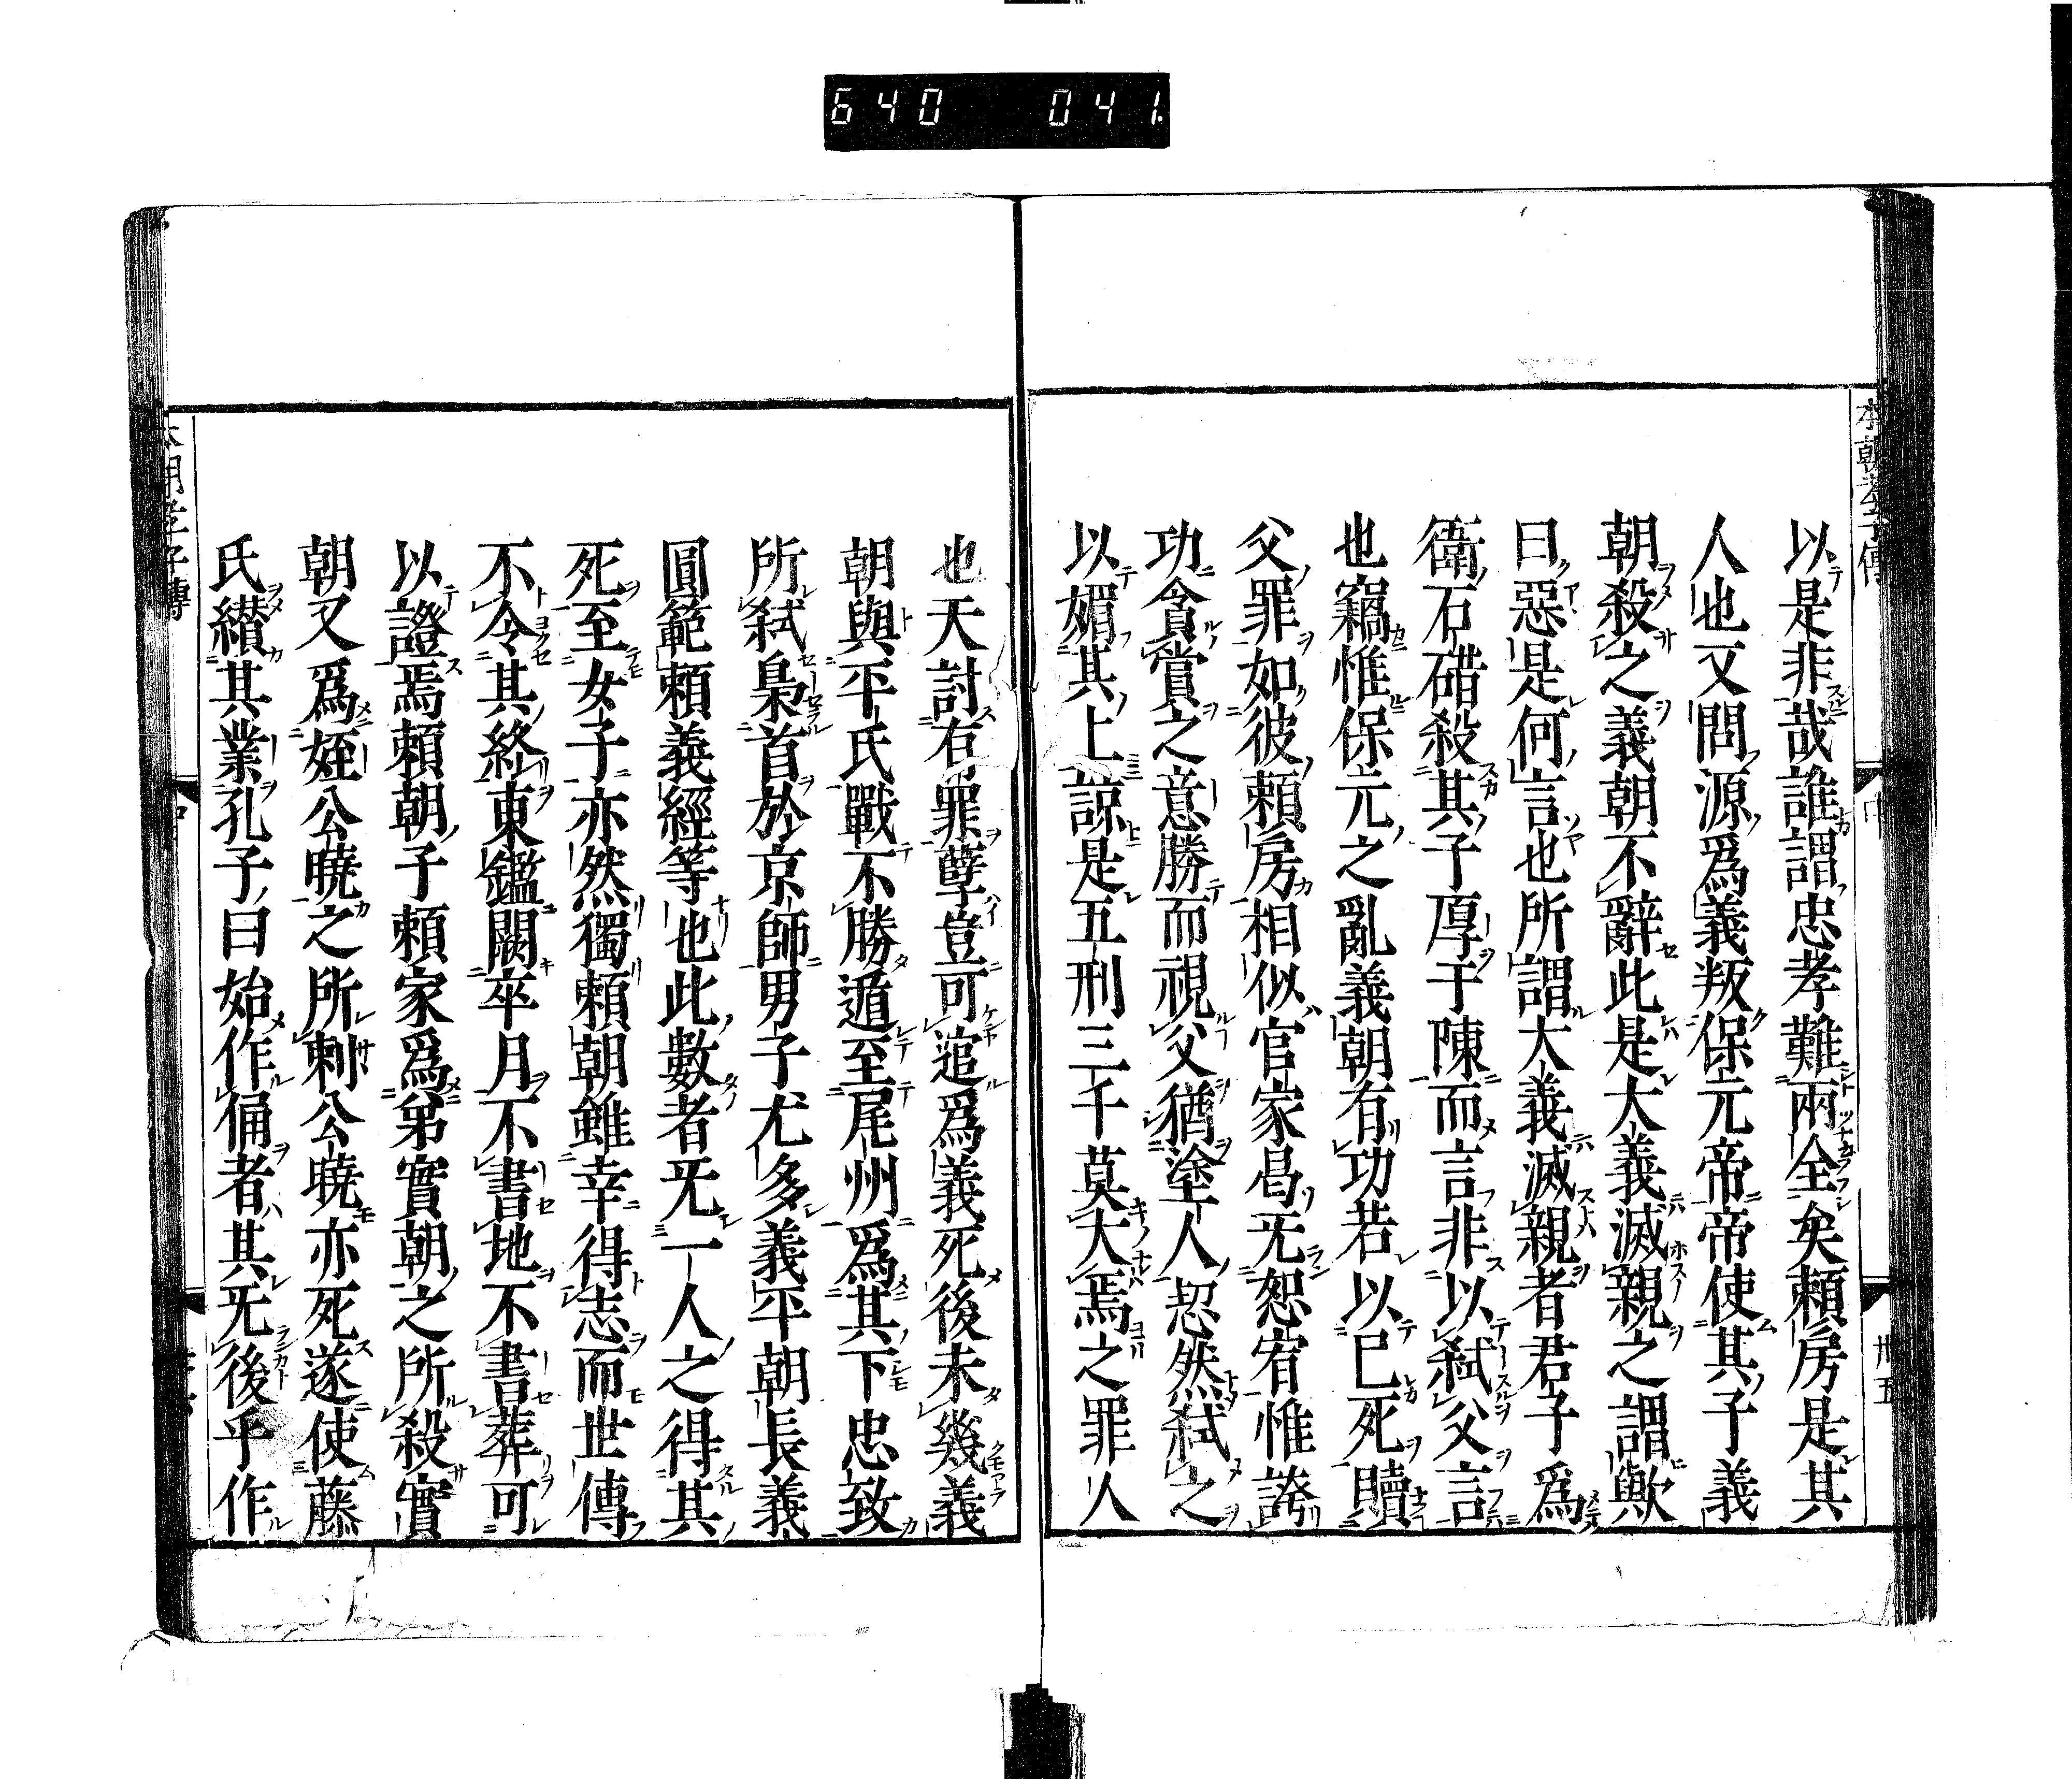 640 041.
本朝孝子傳 中 卅五
以是非哉誰謂忠孝難兩全矣賴房是其
人也又問源爲義叛保元帝帝使其子義
朝殺之義朝不辭此是大義滅親之謂歟
曰惡是何言也所謂大義滅親者君子爲
衛石碏殺其子厚于陳而言非以弑父言
也竊惟保元之亂義朝有功若以已死贖
父罪如彼賴房相似官家曷无恕宥惟誇
功貪賞之意勝而視父猶塗人恝然弑之
以媚其上諒是五刑三千莫大焉之罪人
也天討有罪孽豈可逭爲義死後未幾義
朝與平氏戰不勝遁至尾州爲其下忠致
所弑梟首於京師男子尤多義平朝長義
圓範賴義經等也此數者旡一人之得其
死至女子亦然獨賴朝雖幸得志而世傳
不令其終東鑑闕卒月不書地不書葬可
以證焉賴朝子賴家爲弟實朝之所殺實
朝又爲姪公曉之所刺公曉亦死遂使藤
氏纉其業孔子曰始作俑者其旡後乎作
本朝孝子傳